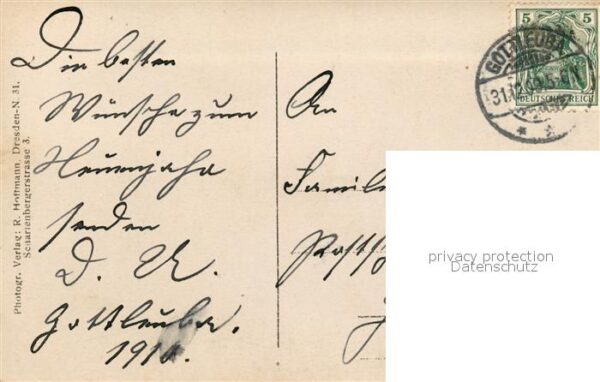 Die besten
Wünsche zum
Neuenjahr
senden
D. U.
Gottleuba.
1910.
An
Familie
Photogr. Verlag: R. Hoffmann, Dresden-N. 31.
Scharfenbergerstrasse 3.
5 5
DEUTSCHES REICH
GOTTLEUBA
31.12.09.5-6N
privacy protection
Datenschutz